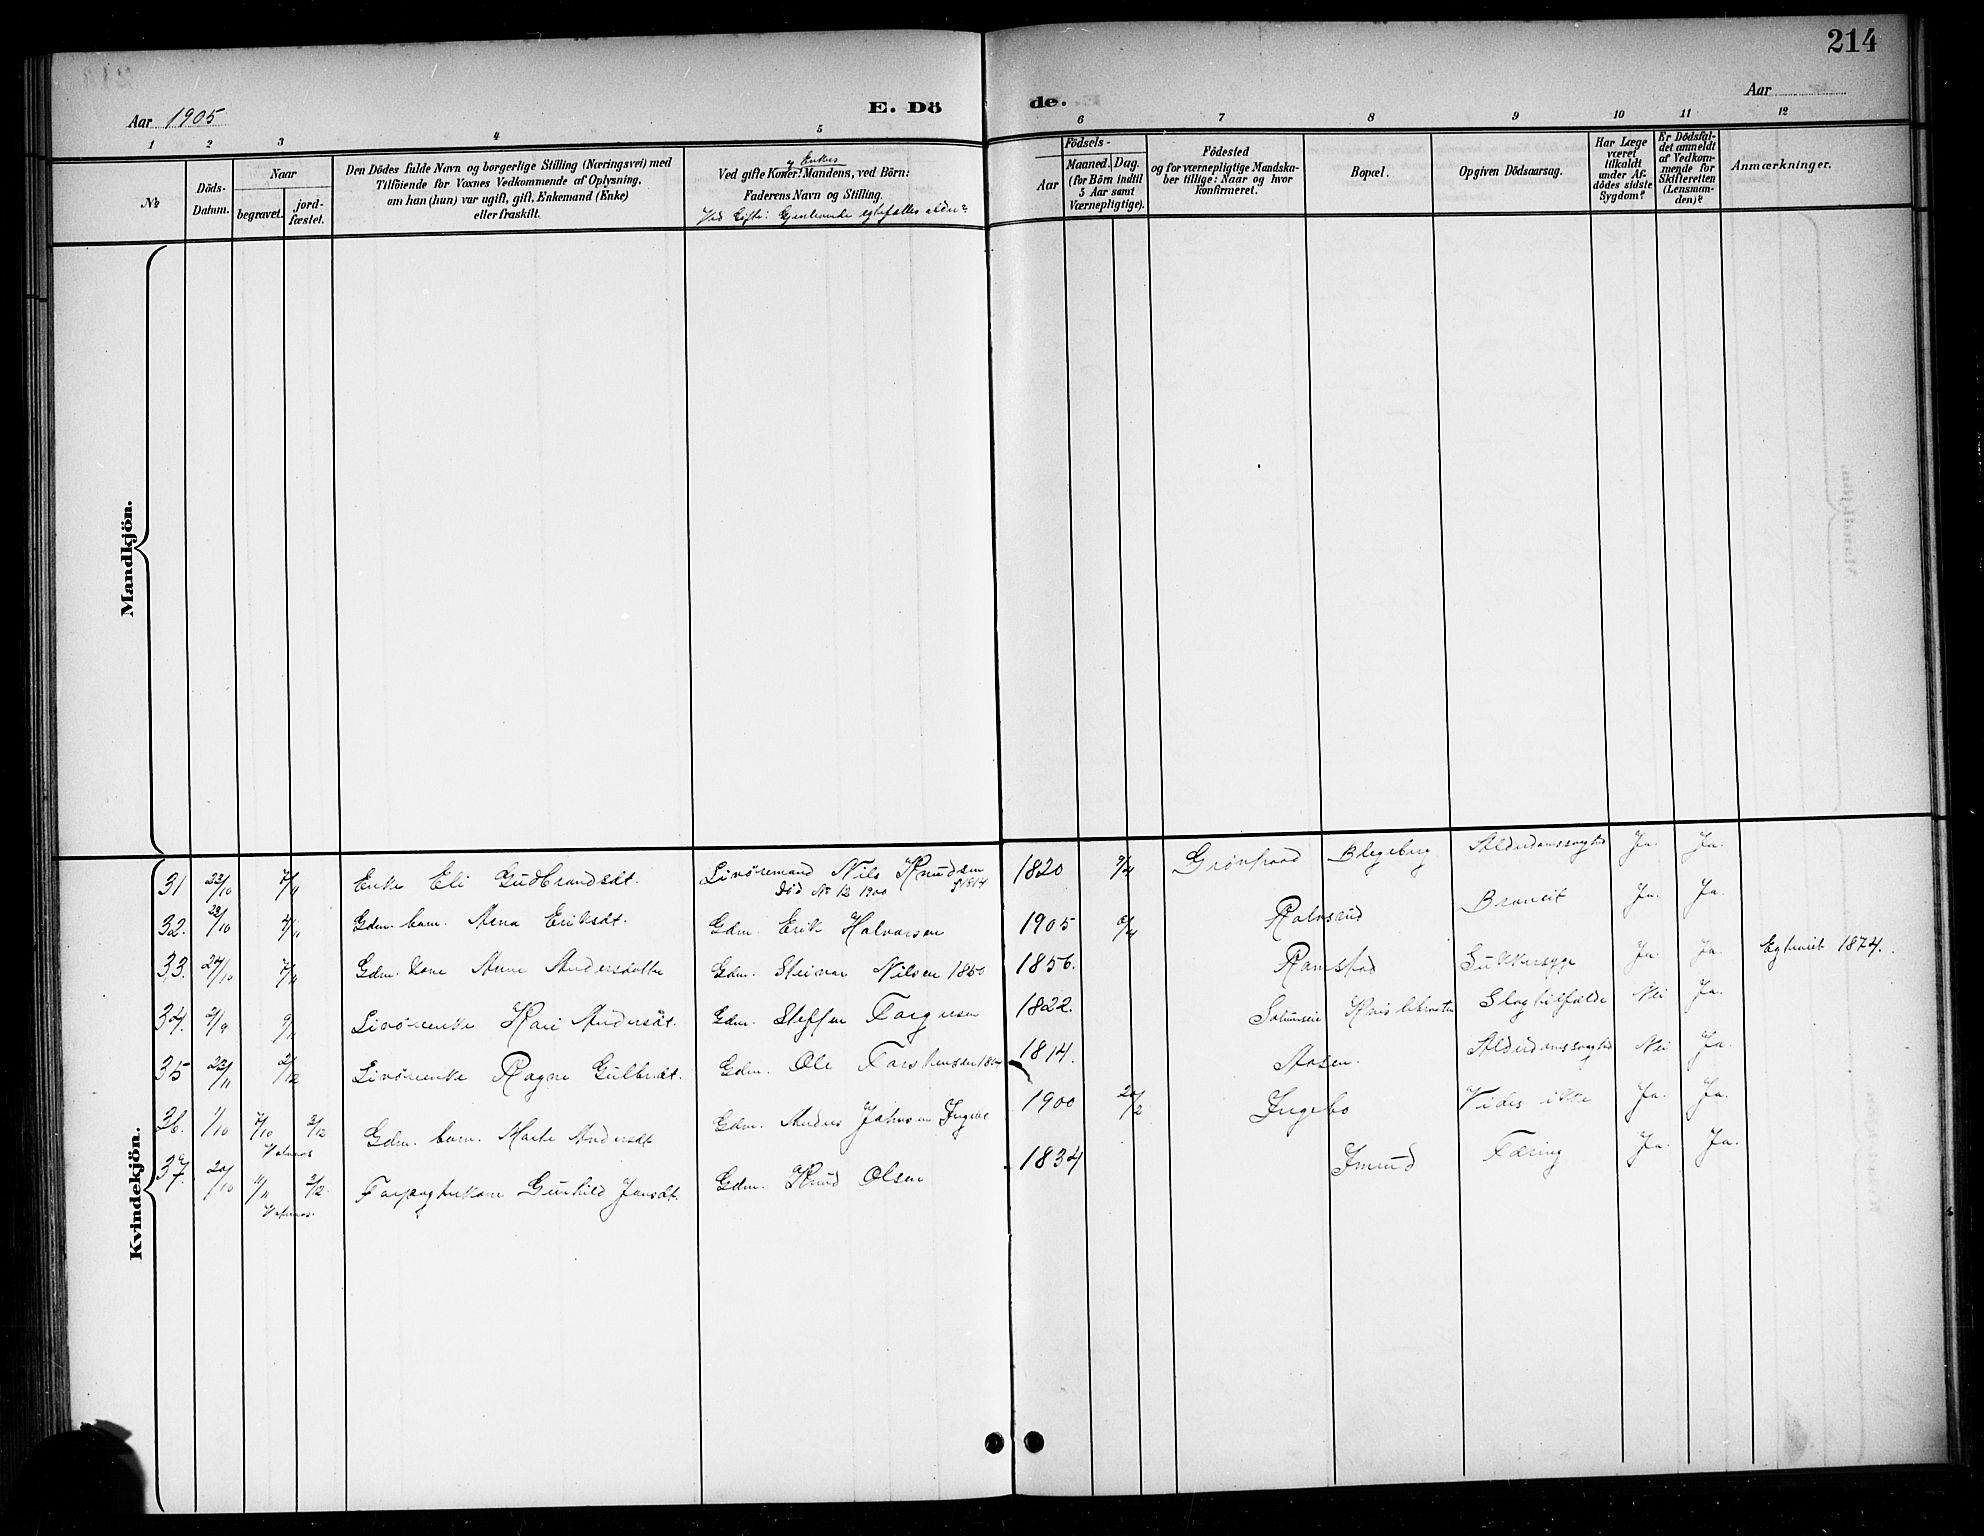 214
Aar 1905
E. Dö
de.
Aar
1 2 3 4 5 6 7 8 9 10 11 12
No
Döds-
Datum.
Naar
begravet.
jord-
fæstet.
Den Dödes fulde Navn og borgerlige Stilling (Næringsvei) med
Tilföiende for Voxnes Vedkommende af Oplysning,
om han (hun) var ugift, gift, Enkemand (Enke)
eller fraskilt.
g Enker
Ved gifte Koner: Mandens, ved Börn:
Faderens Navn og Stilling.
Ved Gifte: Gjenlevende egtefælles alder
Födsels-
Aar
Maaned. Dag.
(for Börn indtil
5 Aar samt
Værnepligtige).
Födested
og for værnepligtige Mandska-
ber tillige: Naar og hvor
konfirmeret.
Bopæl.
Opgiven Dödsaarsag.
Har Læge
været
tilkaldt
under Af-
dödes sidste
Sygdom?
Er Dödsfal-
det anmeldt
af Vedkom-
mende for
Skifteretten
(Lensman-
den)?
Anmærkninger.
Mandkjön.
Kvindekjön.
31 23/10 7/11 Enke Eli Gudbrandsdt. Livöremand Nils Knudsen 1820 9/4 Blegeberg Alderdomssvaghed Ja. Ja.
död No 12 1900 f 1814
32. 28/10 4/11 Gdm. barn. Anna Eriksdt. Gdm. Erik Halvorsen 1905 Ralvsrud Broncit Ja. Ja.
33. 24/10 7/11 Gdm. kone Anne Andersdatter Gdm. Steinar Nilsen 1850 1856. Ramstad Sukkersyge Ja. Ja. Egteviet 1874.
34. 2/9 9/11 Livörenke Kari Andersdt. Gdm. Steffen Torgersen 1822. Slagtilfælde Nei Ja.
35 23/11 2/12 Livörenke Ragne Gulbrdt. Gdm. Ole Torstensen 1814. Aasen. Alderdomssvaghed Nei Ja.
36. 1/10 7/10 2/12 Gdm. barn. Marte Andersdt Gdm. Anders Jahnsen Ingebo 1900 20/2 Ingebo Vides ikke Ja. Ja.
37. 20/10 2/12. Forpagterkone Gunhild Jensdt. Gdm. Knud Olsen 1834 Imrud Tæring Ja. Ja.